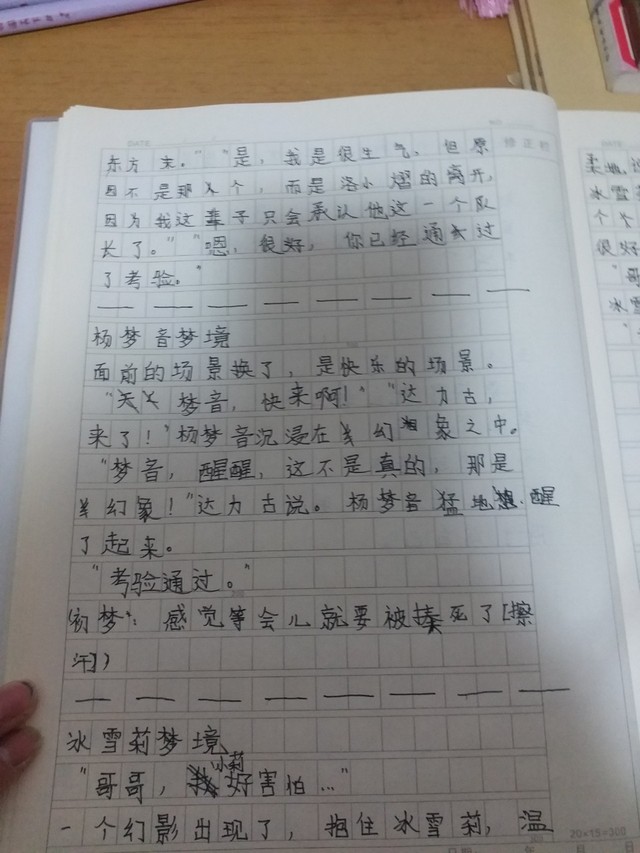 DATE
东方末。”“是，我是很生气，但原
因不是那个，而是洛小熠的离开，
因为我这辈子只会承认他这一个队
长了。”“嗯，很好，你已经通过
了考验。”
杨梦音梦境
面前的场景换了，是快乐的场景。
“梦音，快来啊！”“达力古，
来了！”杨梦音沉浸在幻象之中。
“梦音，醒醒，这不是真的，那是
幻象！”达力古说。杨梦音猛地醒
了起来。
“考验通过。”
（初梦：感觉等会儿就要被揍死了[擦
汗]）
冰雪莉梦境
“哥哥，小莉好害怕…”
一个幻影出现了，抱住冰雪莉，温
20×15=300
柔地
冰雪
个
很好
“哥
冰雪